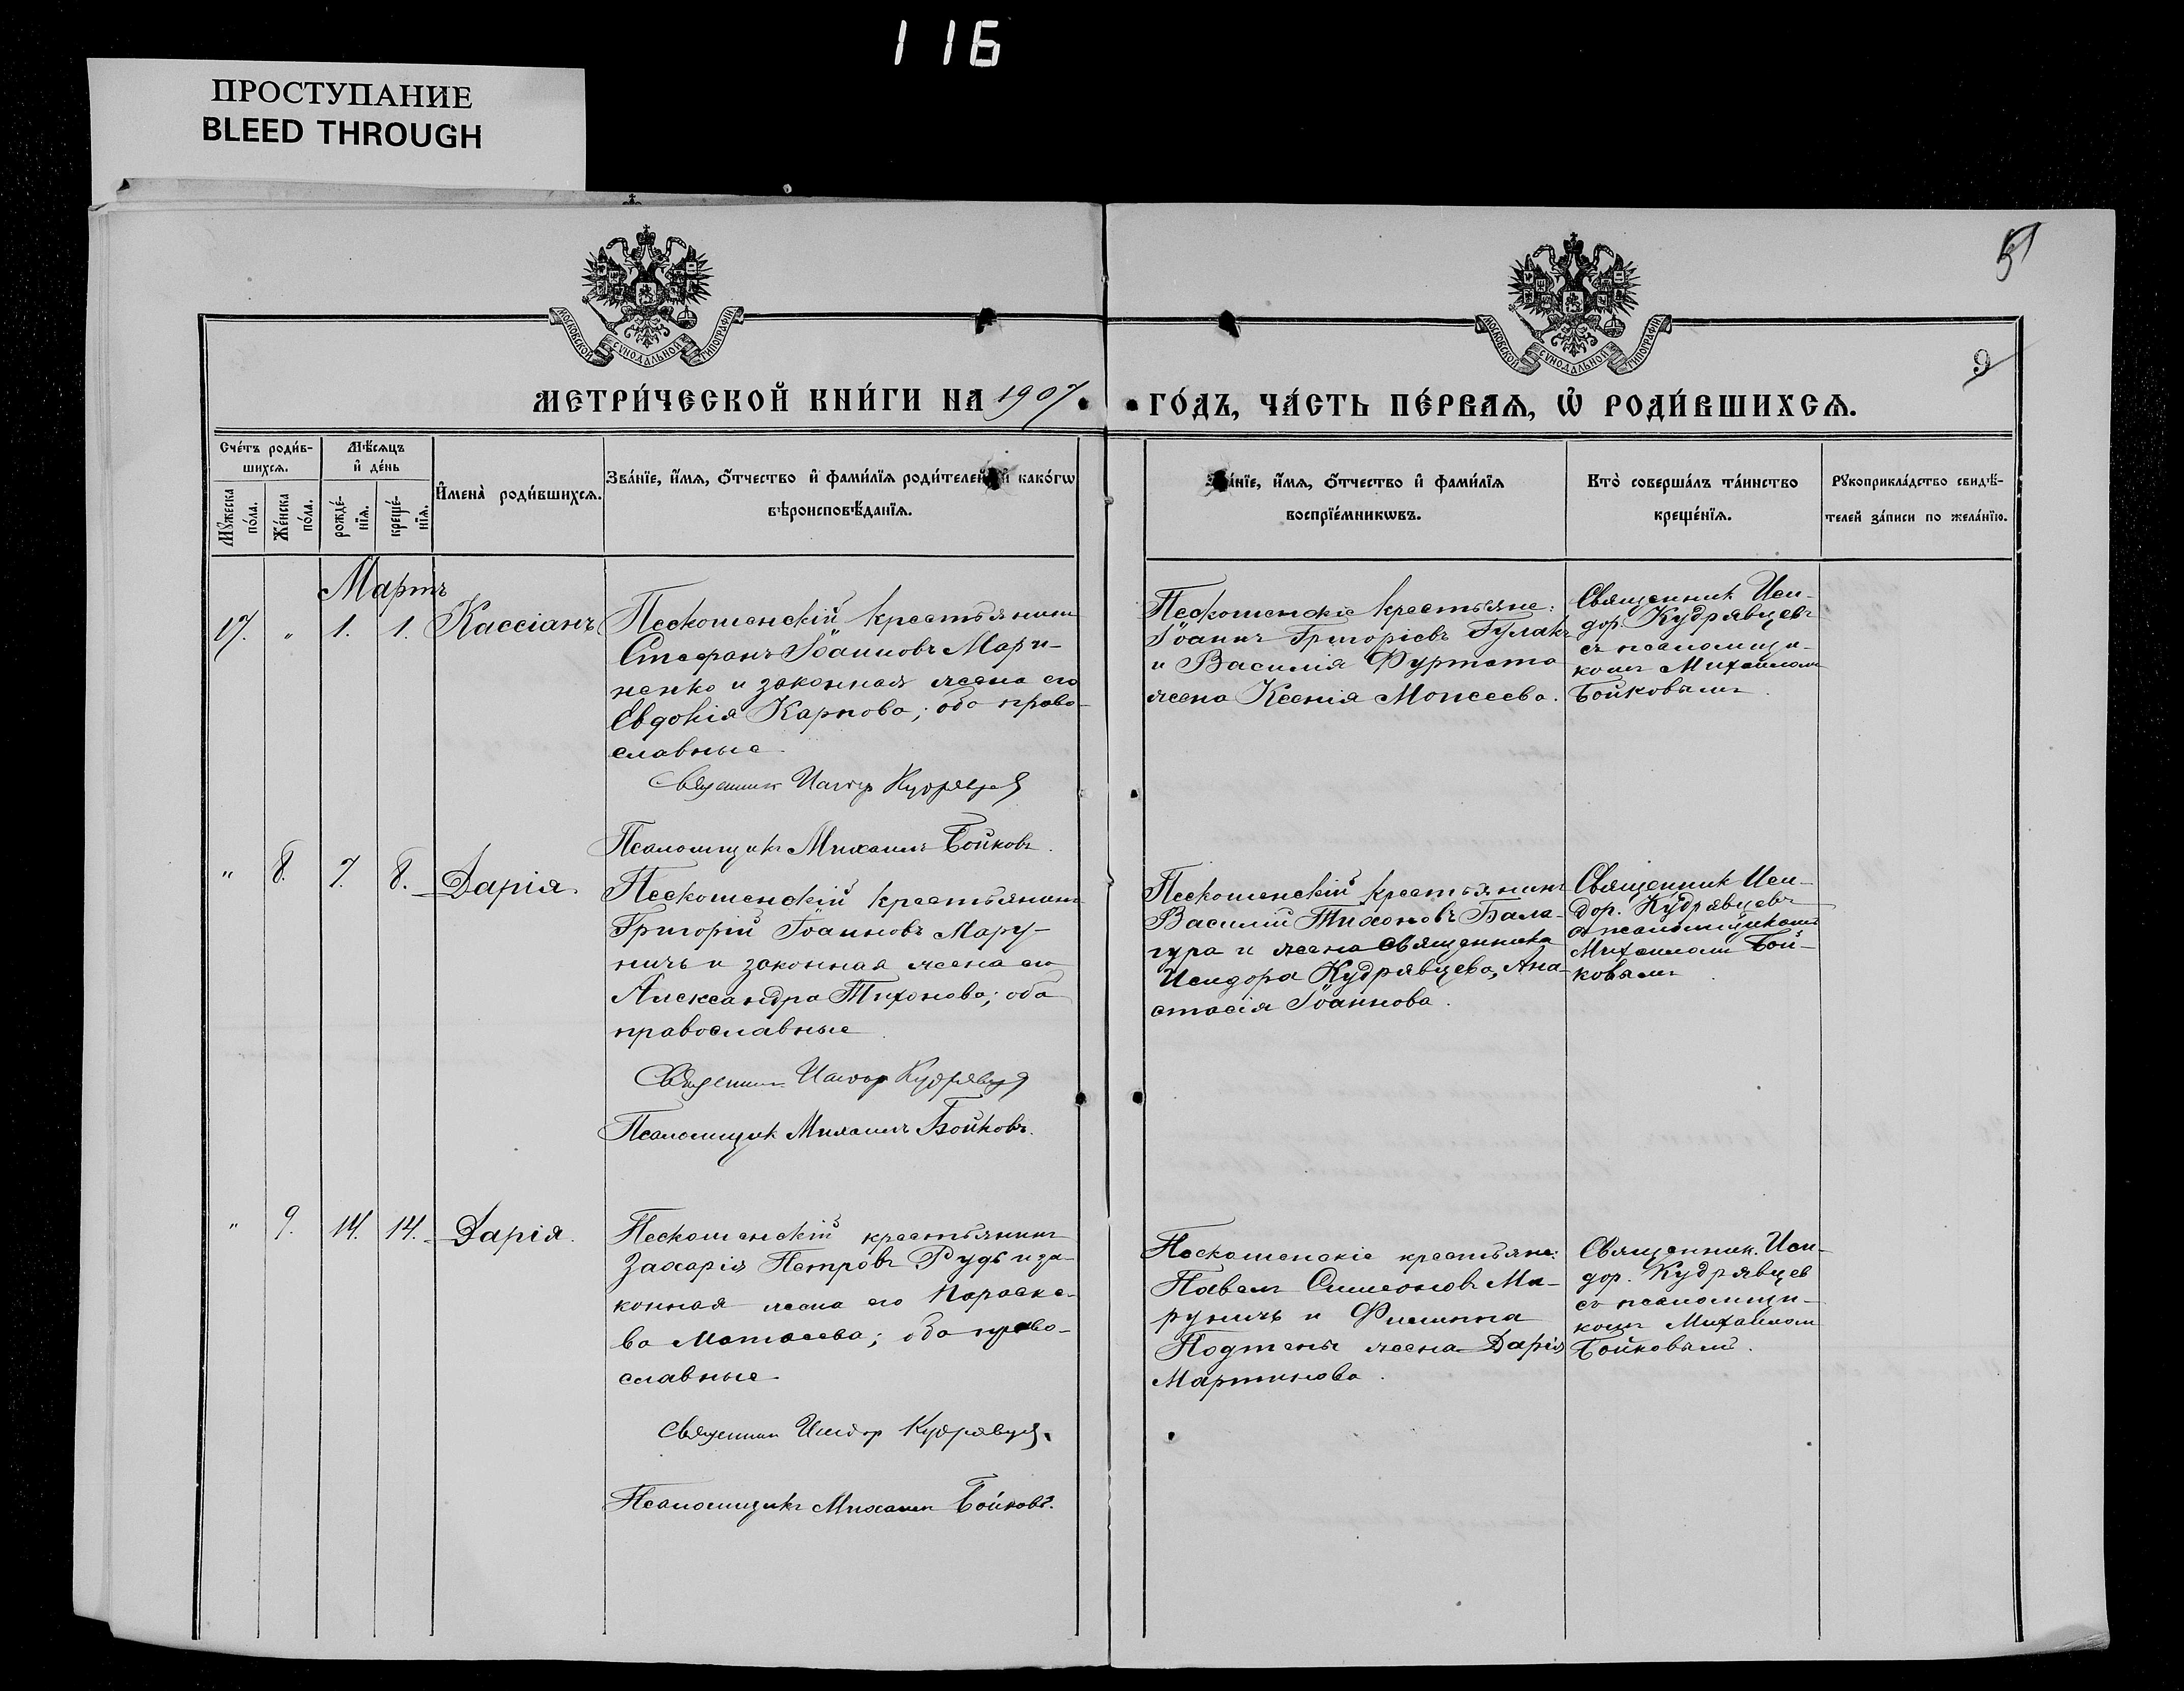 116
ПРОСТУПАНИЕ
BLEED THROUGH
51
9
МОСКОВСКОЙ СѴНОДАЛЬНОЙ ТИПОГРАФІИ
МОСКОВСКОЙ СѴНОДАЛЬНОЙ ТИПОГРАФІИ
МЕТРИ́ЧЕСКОЙ КНИ́ГИ НА 1907
ГО́ДЪ, ЧА́СТЬ ПЕ́РВАѦ, Ѡ҆ РОДИ́ВШИХСѦ.
Сче́тъ роди́в-
шихсѧ.
Мꙋ́жеска
по́ла.
Же́нска
по́ла.
Мѣ́сѧцъ
и҆ де́нь
рожде́-
нїѧ.
креще́-
нїѧ.
И҆мена̀ роди́вшихсѧ.
Зва́нїе, и҆́мѧ, ѻ҆́тчество и҆ фами́лїѧ роди́телей и҆ како́гѡ
вѣроисповѣ́данїѧ.
Зва́нїе, и҆́мѧ, ѻ҆́тчество и҆ фами́лїѧ
воспрїе́мникѡвъ.
Кто̀ соверша́лъ та́инство
креще́нїѧ.
Рꙋкоприкла́дство свидѣ́-
телей за́писи по жела́нїю.
Мартъ
17. " 1. 1. Кассіанъ
Пескошенскій крестьянинъ
Стефанъ Іоанновъ Мари-
ненко и законная жена его
Евдокія Карпова; оба право-
славные.
Священник Исидор Кудрявцев
Псаломщикъ Михаилъ Бойковъ.
Пескошенскіе крестьяне:
Іоаннъ Григоріевъ Гулакъ
и Василія Фуртата
жена Ксенія Моисеева.
Священникъ Иси-
дор. Кудрявцевъ
съ псаломщи-
комъ Михаиломъ
Бойковымъ.
" 8. 7. 8. Дарія.
Пескошенскій крестьянинъ
Григорій Іоанновъ Мару-
ничъ и законная жена его
Александра Тихонова; оба
православные.
Священник Исидор Кудрявцев
Псаломщик Михаилъ Бойковъ.
Пескошенскій крестьянинъ
Василій Тихоновъ Бала-
гура и жена священника
Исидора Кудрявцева, Ана-
стасія Іоаннова.
Священникъ Иси-
дор. Кудрявцевъ
съ псаломщикомъ
Михаиломъ Бой-
ковымъ.
" 9. 14. 14. Дарія.
Пескошенскій крестьянинъ
Захарія Петровъ Рудь и за-
конная жена его Параске-
ва Матѳеева; оба право-
славные.
Священник Исидор Кудрявцев.
Псаломщикъ Михаил Бойковъ.
Пескошенскіе крестьяне:
Павелъ Симеоновъ Ма-
руничъ и Филиппа
жена Дарія
Мартинова.
Священник. Иси-
дор. Кудрявцев
съ псаломщи-
комъ Михаилом
Бойковымъ.